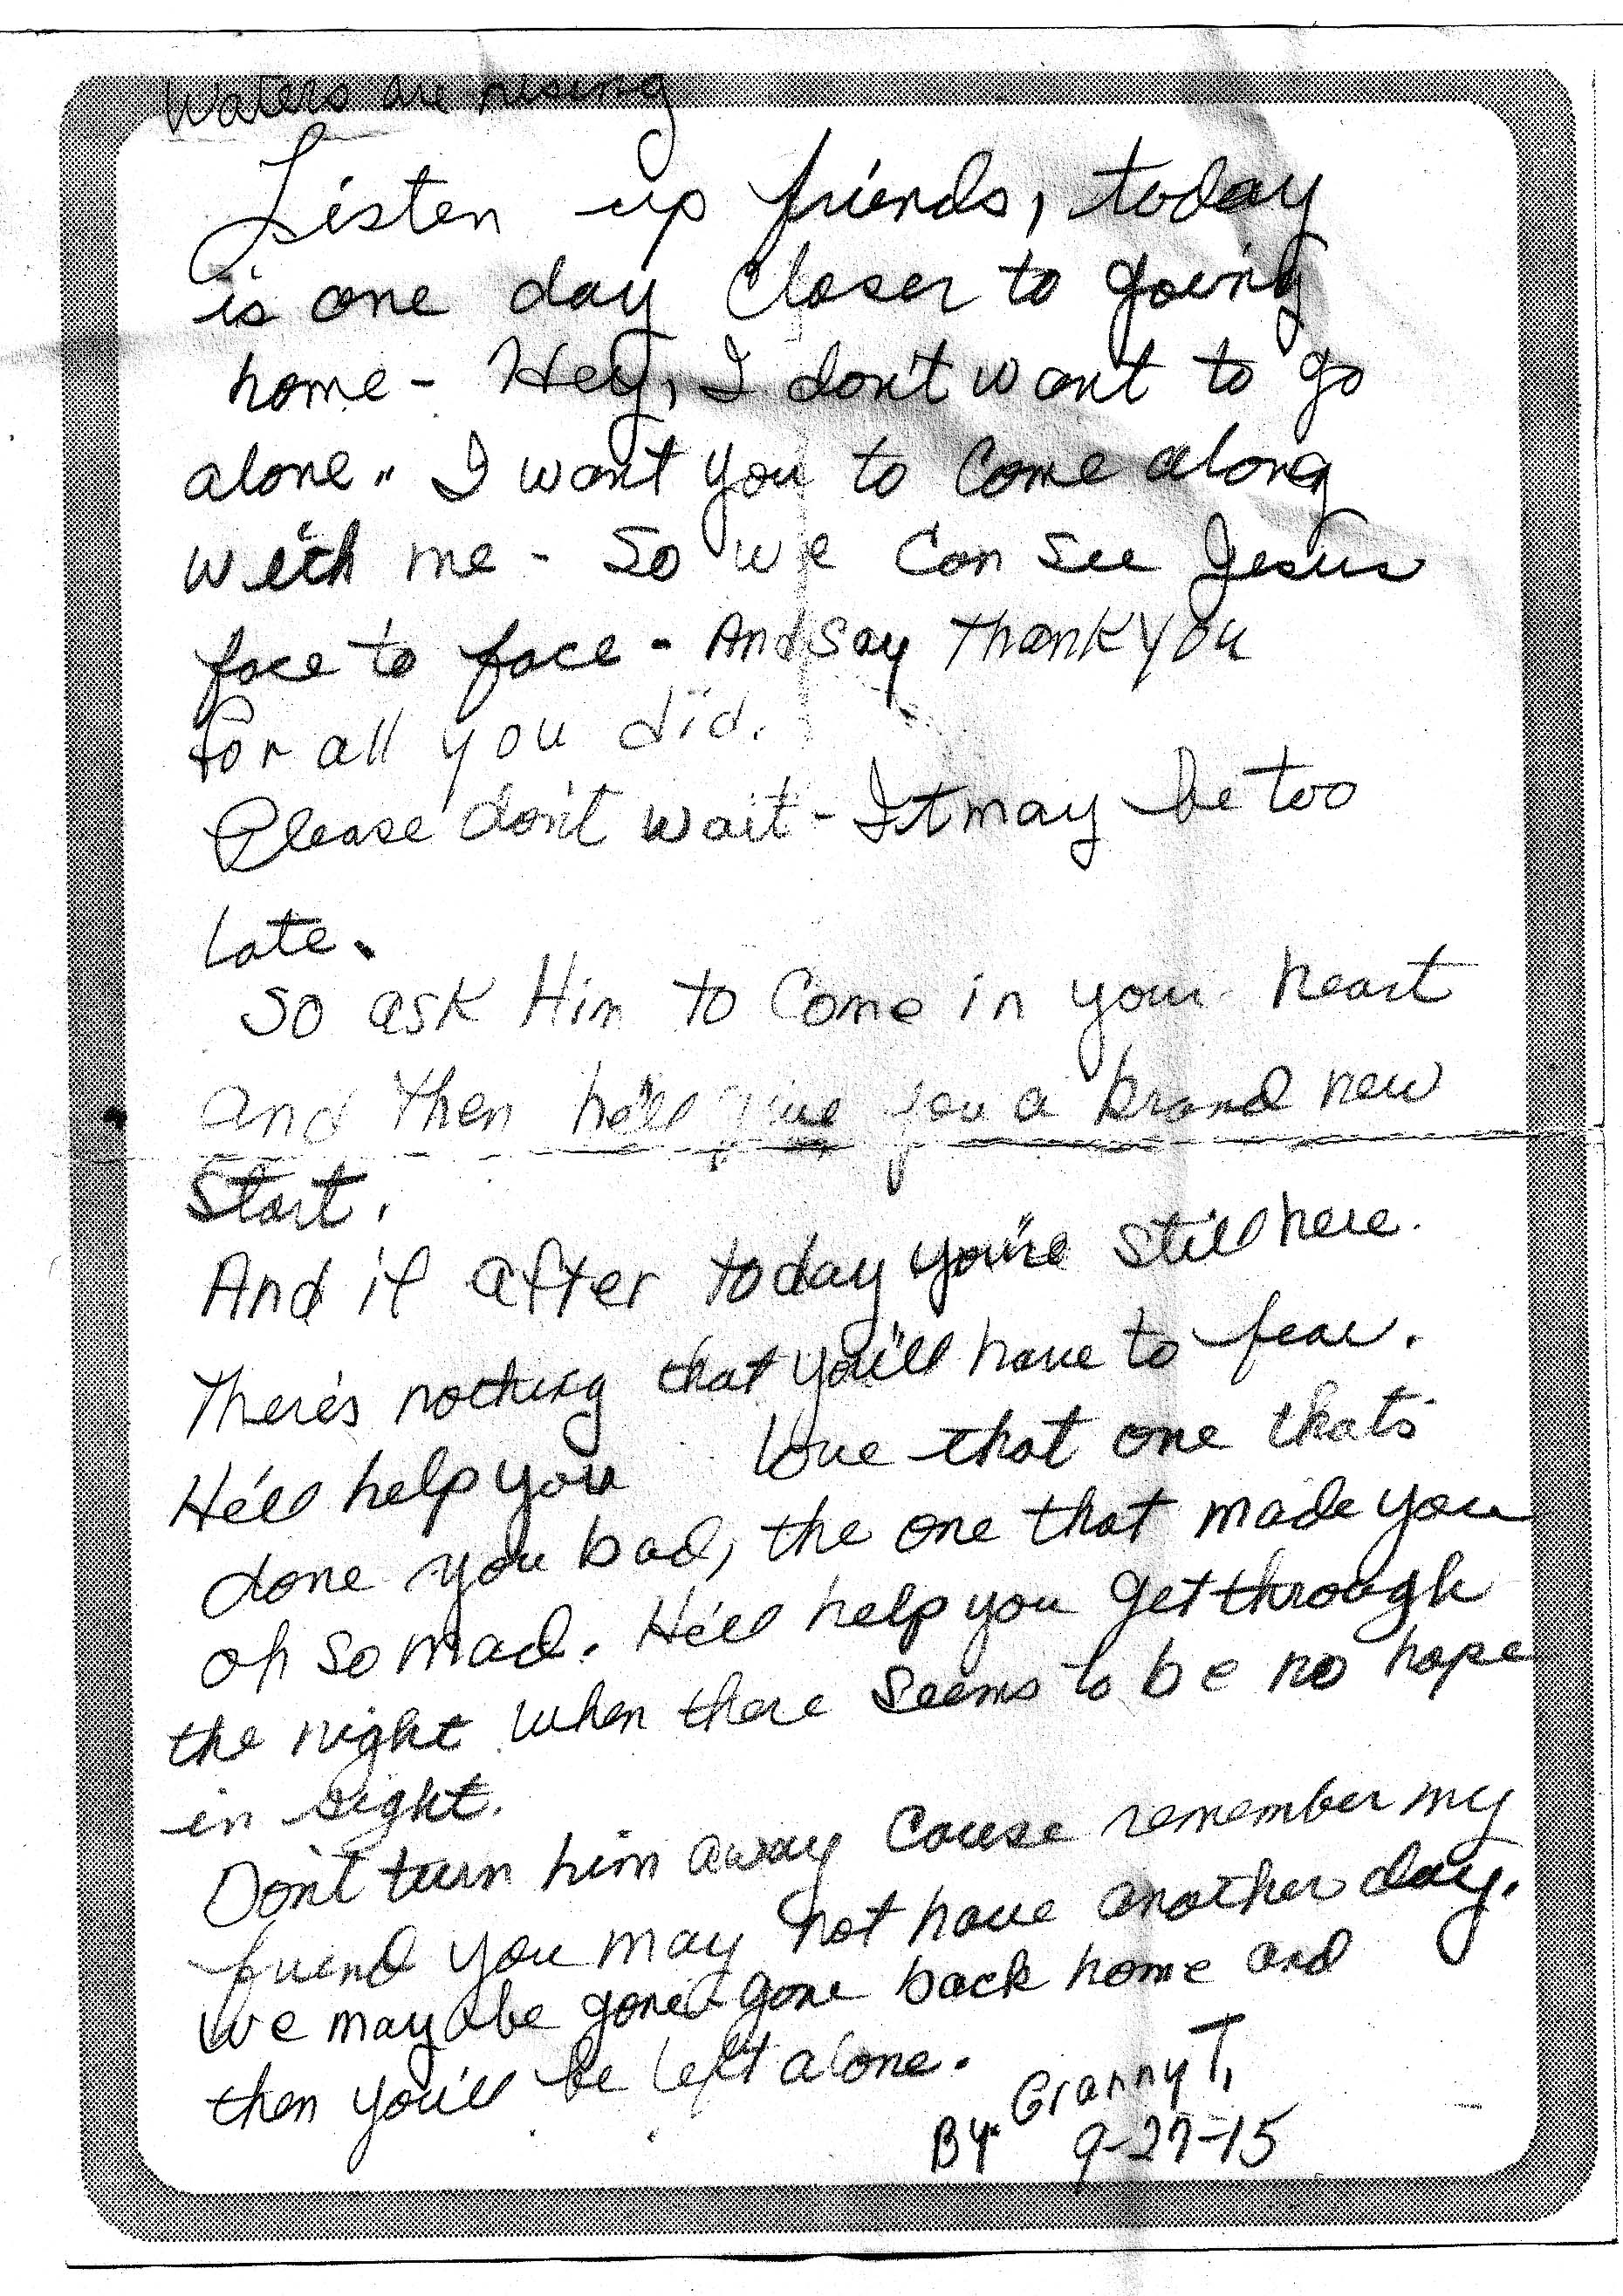 Waters are rising
Listen up friends, today
is one day closer to going
home - Hey, I don't want to go
alone.. I want you to come along
with me - So we can see Jesus
face to face - And say thank you
for all you did.
Please don't wait - It may be too
late.
So ask Him to come in your heart
and then he'll give you a brand new
start.
And if after today you're still here.
There's nothing that you'll have to fear.
He'll help you love that one that's
done you bad, the one that made you
oh so mad. He'll help you get through
the night when there seems to be no hope
in sight.
Don't turn him away cause remember my
friend you may not have another day.
We may be gone - gone back home and
then you'll be left alone.
By Granny T.
9-27-15